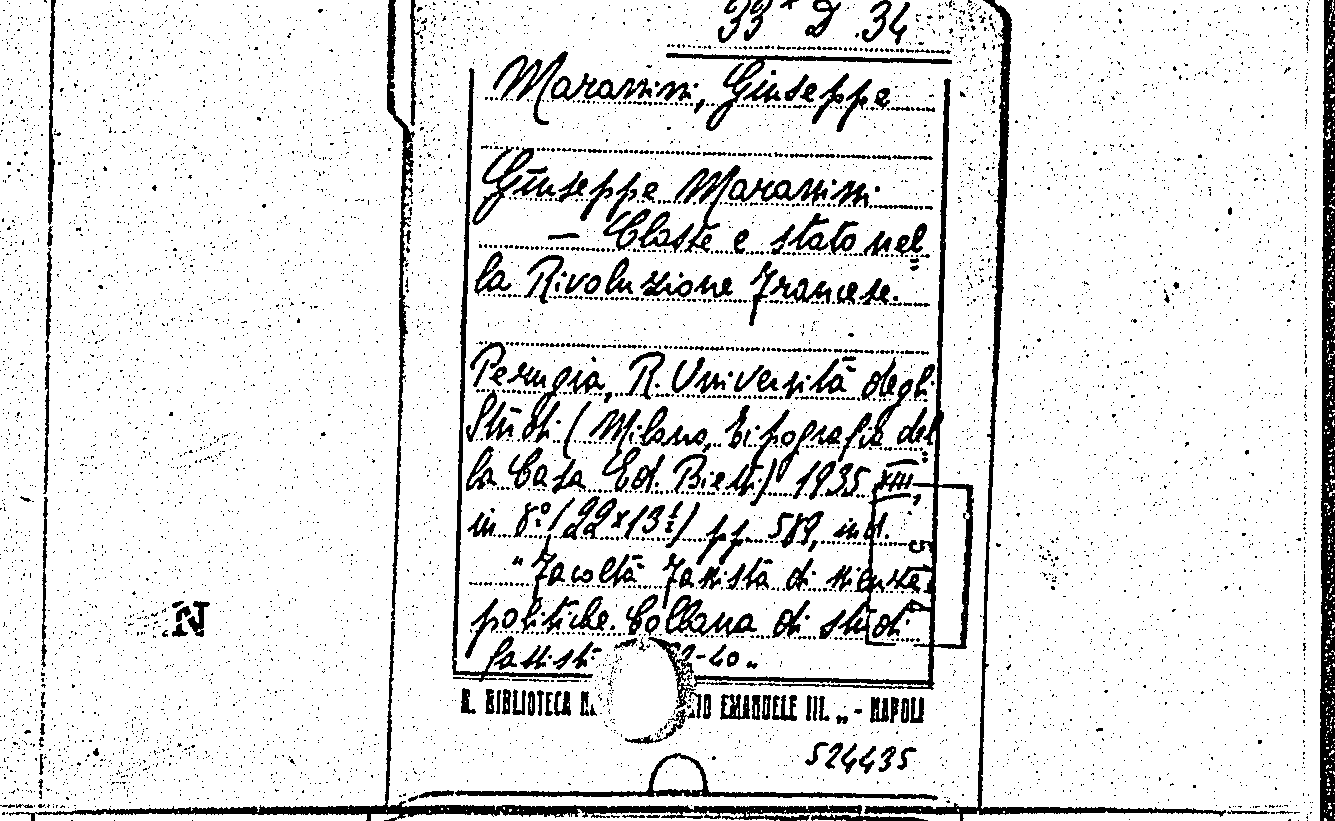 33* D .34
Maranini, Giuseppe
Giuseppe Maranini
– Classe e stato nel„
la Rivoluzione Francese.
Perugia, R. Università degli
Studi (Milano, tipografia del„
la Casa Ed. Bietti) 1935 XIII,
in 8º (22x13½) pp. 589, ind.
"Facoltà Fascista di scienze
politiche. Collana di studi
fascisti
R. BIBLIOTECA EMANUELE III. „ - NAPOLI
524435
N